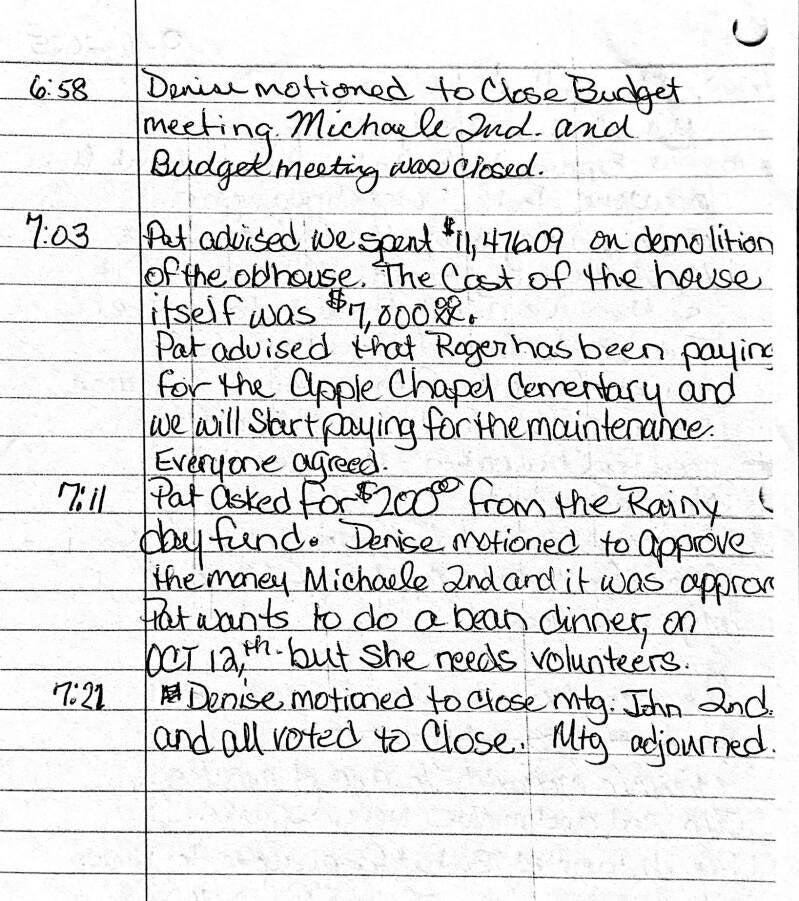 6:58 Denise motioned to Close Budget
meeting. Michaele 2nd. and
Budget meeting was closed.
7:03 Pat advised we spent $11,476.09 on demolition
of the old house. The Cost of the house
itself was $7,000.00.
Pat advised that Roger has been paying
for the Apple Chapel Cementary and
we will Start paying for the maintenance.
Everyone agreed.
7:11 Pat asked for $200.00 from the Rainy
day fund. Denise motioned to approve
the money Michaele 2nd and it was approv
Pat wants to do a bean dinner, on
OCT 12,th but she needs volunteers.
7:21 Denise motioned to close mtg. John 2nd.
and all voted to Close. Mtg adjourned.